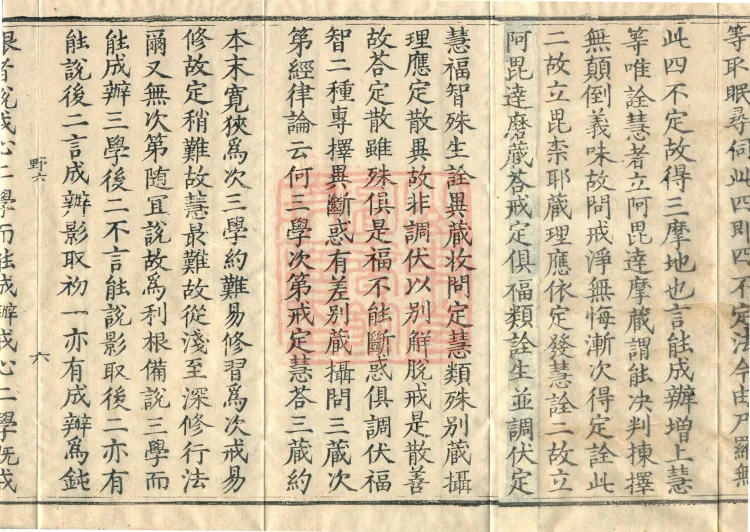 等取眠尋伺此四即四不定法今由尸羅無
此四不定故得三摩地也言能成辦增上慧
等唯詮慧者立阿毘達摩藏謂能決判揀擇
無顛倒義味故問戒淨無悔漸次得定詮此
二故立毘柰耶藏理應依定發慧詮二故立
阿毘達磨藏荅戒定俱福類詮生並調伏定
慧福智殊生詮異藏收問定慧類殊別藏攝
理應定散異故非調伏以別解脫戒是散善
故荅定散雖殊俱是福不能斷惑俱調伏福
智二種專擇異斷惑有差別藏攝問三藏次
第經律論云何三學次第戒定慧荅三藏約
本末寬狹為次三學約難易修習為次戒易
修故定稍難故慧最難故從淺至深修行法
爾又無次第隨宜說故為利根備說三學而
能成辦三學後二不言能說影取後二亦有
能說後二言成辦影取初一亦有成辦為鈍
野六
六
根者說戒心二學而能成辦戒心二學既戒